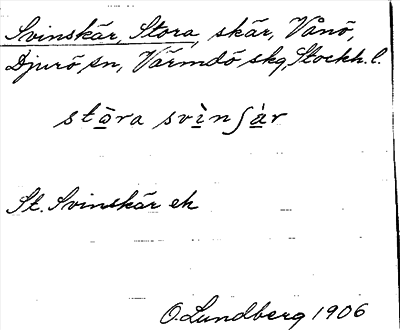 Svinskär, Stora, skär, Vånö,
Djurö sn, Värmdö skg, Stockh. l.
stòra svìnʃàr
St. Svinskär ek
O. Lundberg 1906